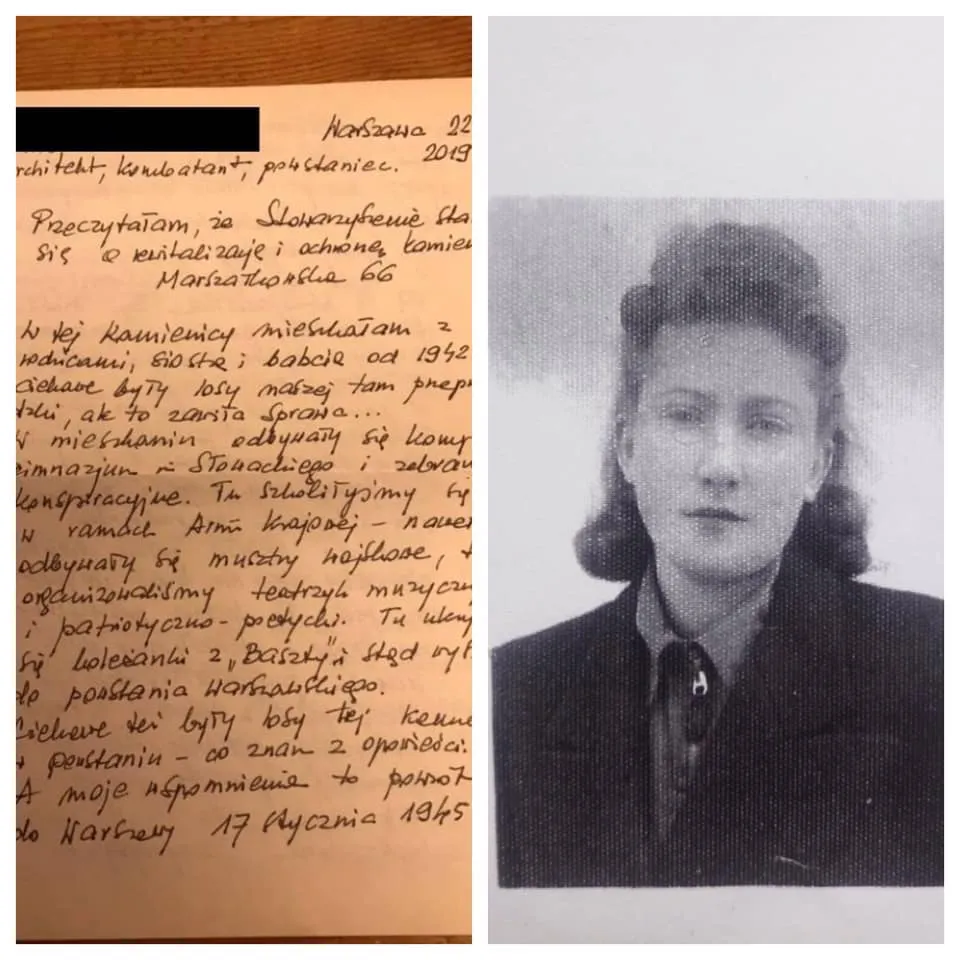 Warszawa 22
2019
rchitekt, kombatant, powstaniec.
Przeczytałam, że Stowarzyszenie sta
się o rewitalizację i ochronę kamien
Marszałkowska 66
W tej kamienicy mieszkałam z
rodzicami, siostrą i babcią od 1942
ciekawe były losy naszej tam przepr
dzki, ale to zawiła sprawa...
W mieszkaniu odbywały się komp
gimnazjum im Słowackiego i zebran
konspiracyjne. Tu szkoliłyśmy się
w ramach Armii Krajowej – nawet
odbywały się musztry wojskowe, t
organizowaliśmy teatrzyk muzyczn
i patriotyczno-poetycki. Tu ukry
się koleżanki z „Baszty" i stąd wy
do powstania Warszawskiego.
Ciekawe też były losy tej kamie
w powstaniu – co znam z opowieści.
A moje wspomnienie to powrót
do Warszawy 17 stycznia 1945